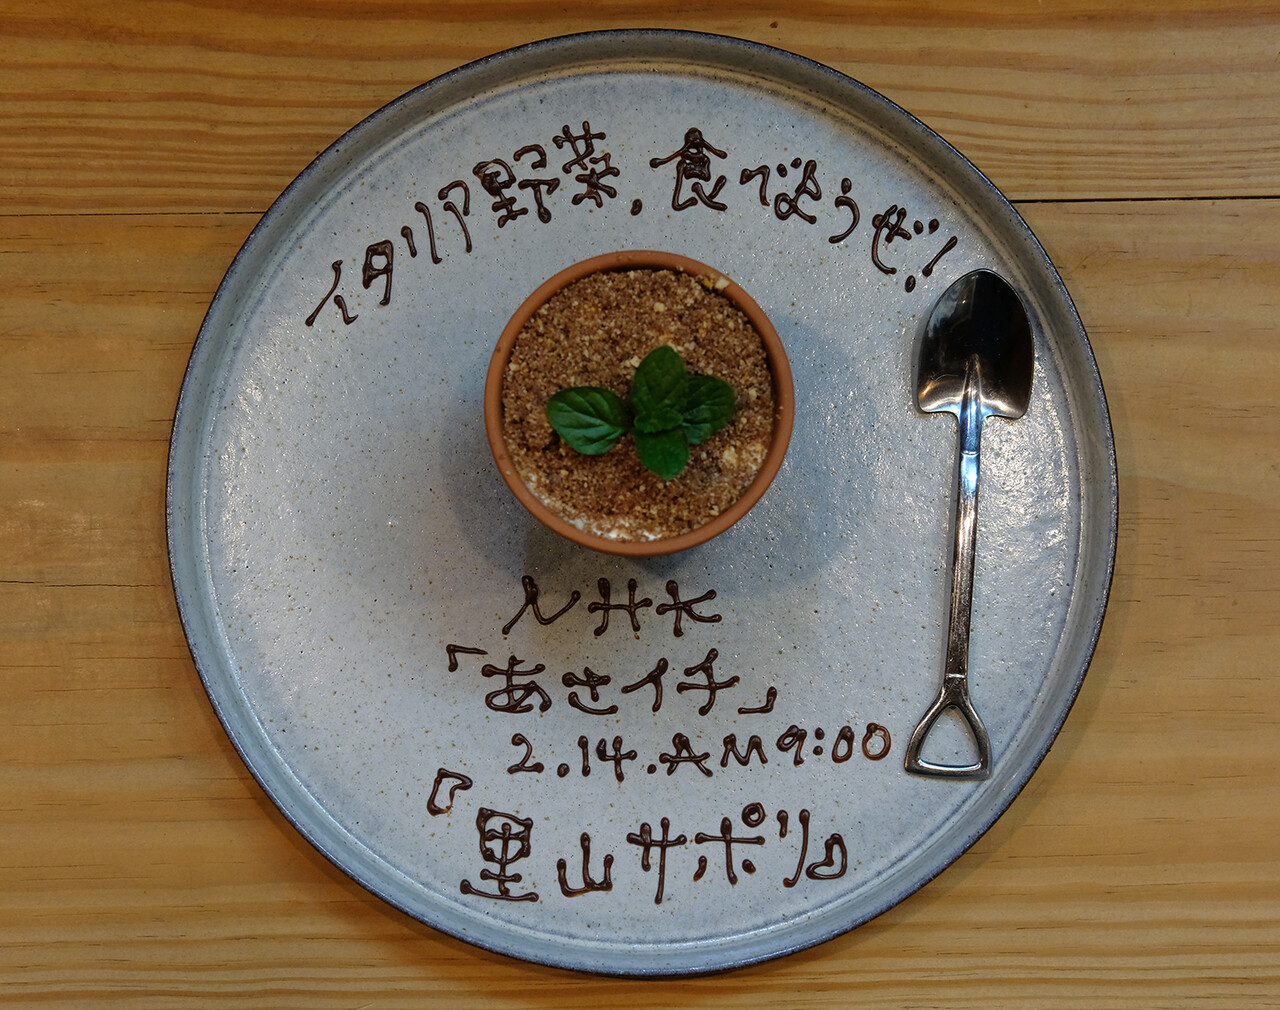 イタリア野菜,食べようぜ!
NHK
「あさイチ」
2.14.AM9:00
『里山サポリ』